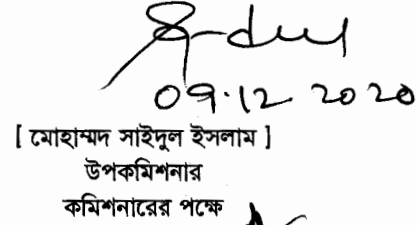 09.12 2020
[ মোহাম্মদ সাইদুল ইসলাম ]
উপকমিশনার
কমিশনারের পক্ষে